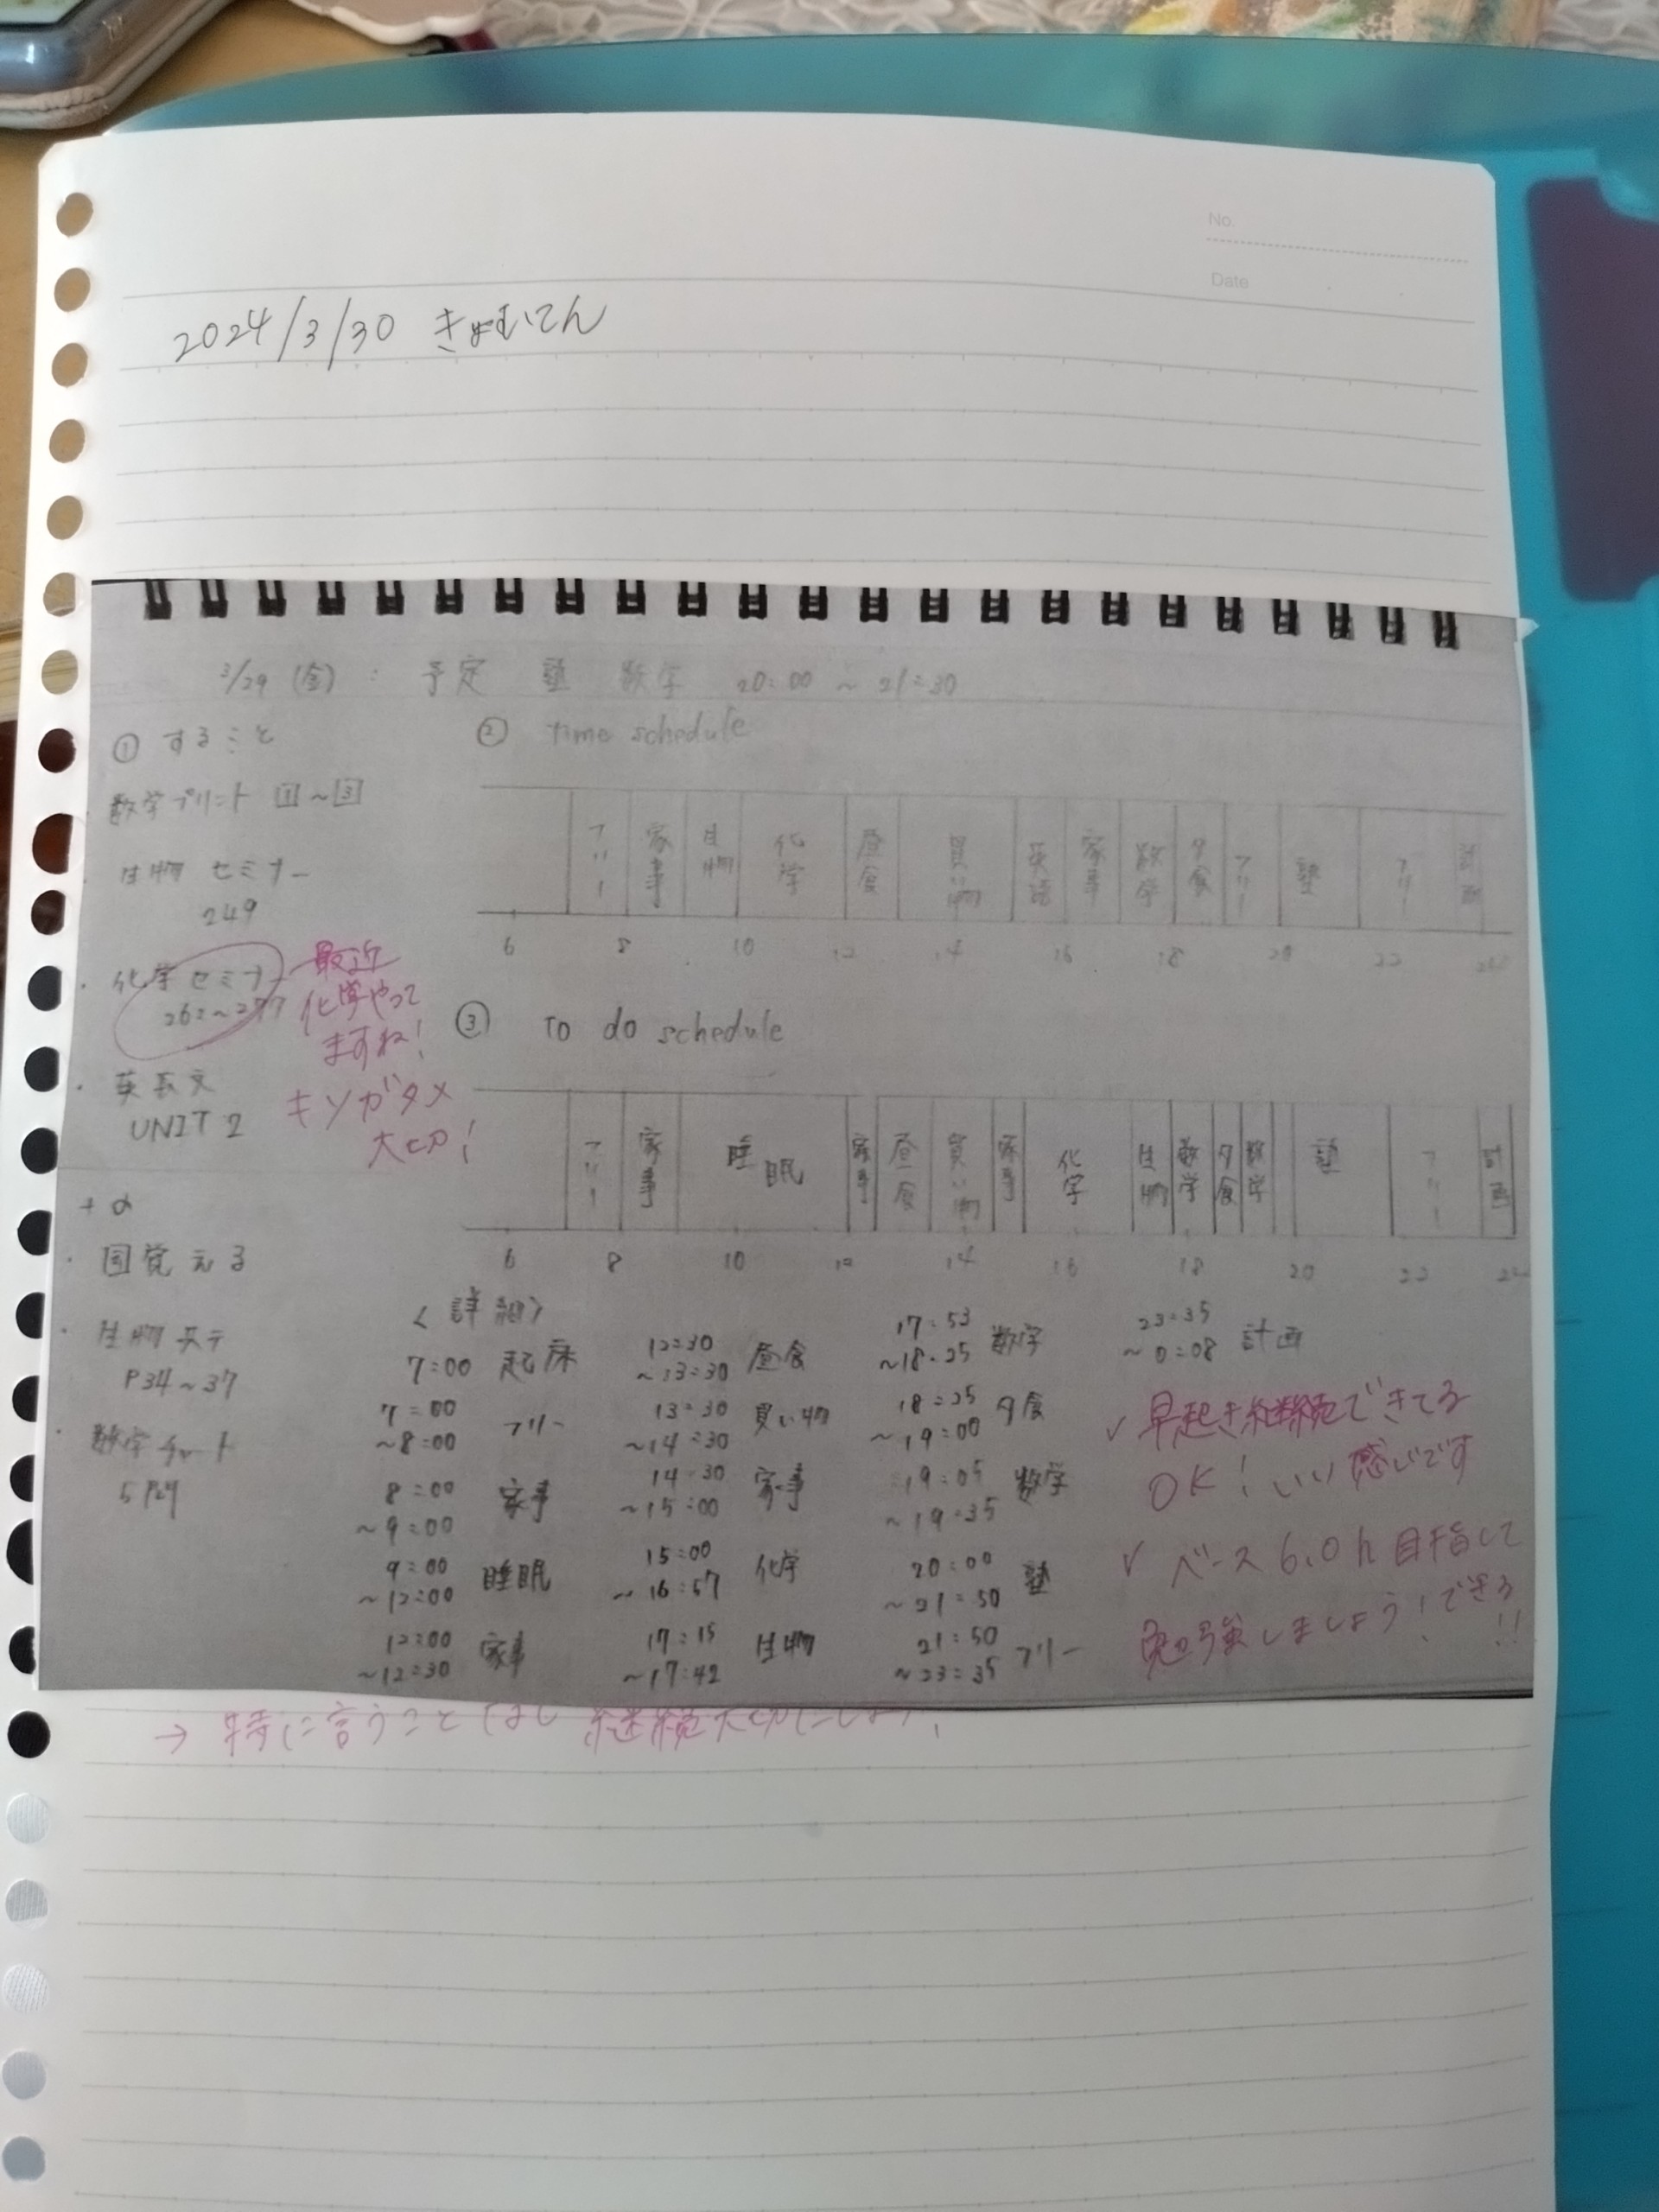 No.
Date
2024/3/30 きょむてん
3/29 (金) : 予定 塾 数学 20:00 ~ 21:30
① すること
数学プリント 1~3
・生物 セミナー
249
・化学セミナー
最近
化学やって
ますね!
キソガタメ
大切!
・英長文
UNIT 2
+α
・国覚える
・生物共テ
P34~37
・数学チャート
② time schedule
フリー 家事 生物 化学 昼食 買い物 英語 家事 数学 夕食 フリー 塾 フリー 計画
6 8 10 12 14 16 18 20 22 24
③ To do schedule
フリー 家事 睡眠 家事 昼食 買い物 家事 化学 生物 数学 夕食 数学 塾 フリー 計画
6 8 10 12 14 16 18 20 22 24
〈詳細〉
7:00 起床
7:00
~8:00 フリー
8:00
~9:00 家事
9:00
~12:00 睡眠
12:00
~12:30 家事
12:30
~13:30 昼食
13:30
~14:30 買い物
14:30
~15:00 家事
15:00
~16:57 化学
17:15
~17:42 生物
17:53
~18:25 数学
18:25
~19:00 夕食
19:05
~19:35 数学
20:00
~21:50 塾
21:50
~23:35 フリー
23:35
~0:08 計画
✓ 早起き継続できてる
OK! いい感じです
✓ ベース6.0h目指して
勉強しましょう!できる!!
→ 特に言うことなし 継続大切にしよう!